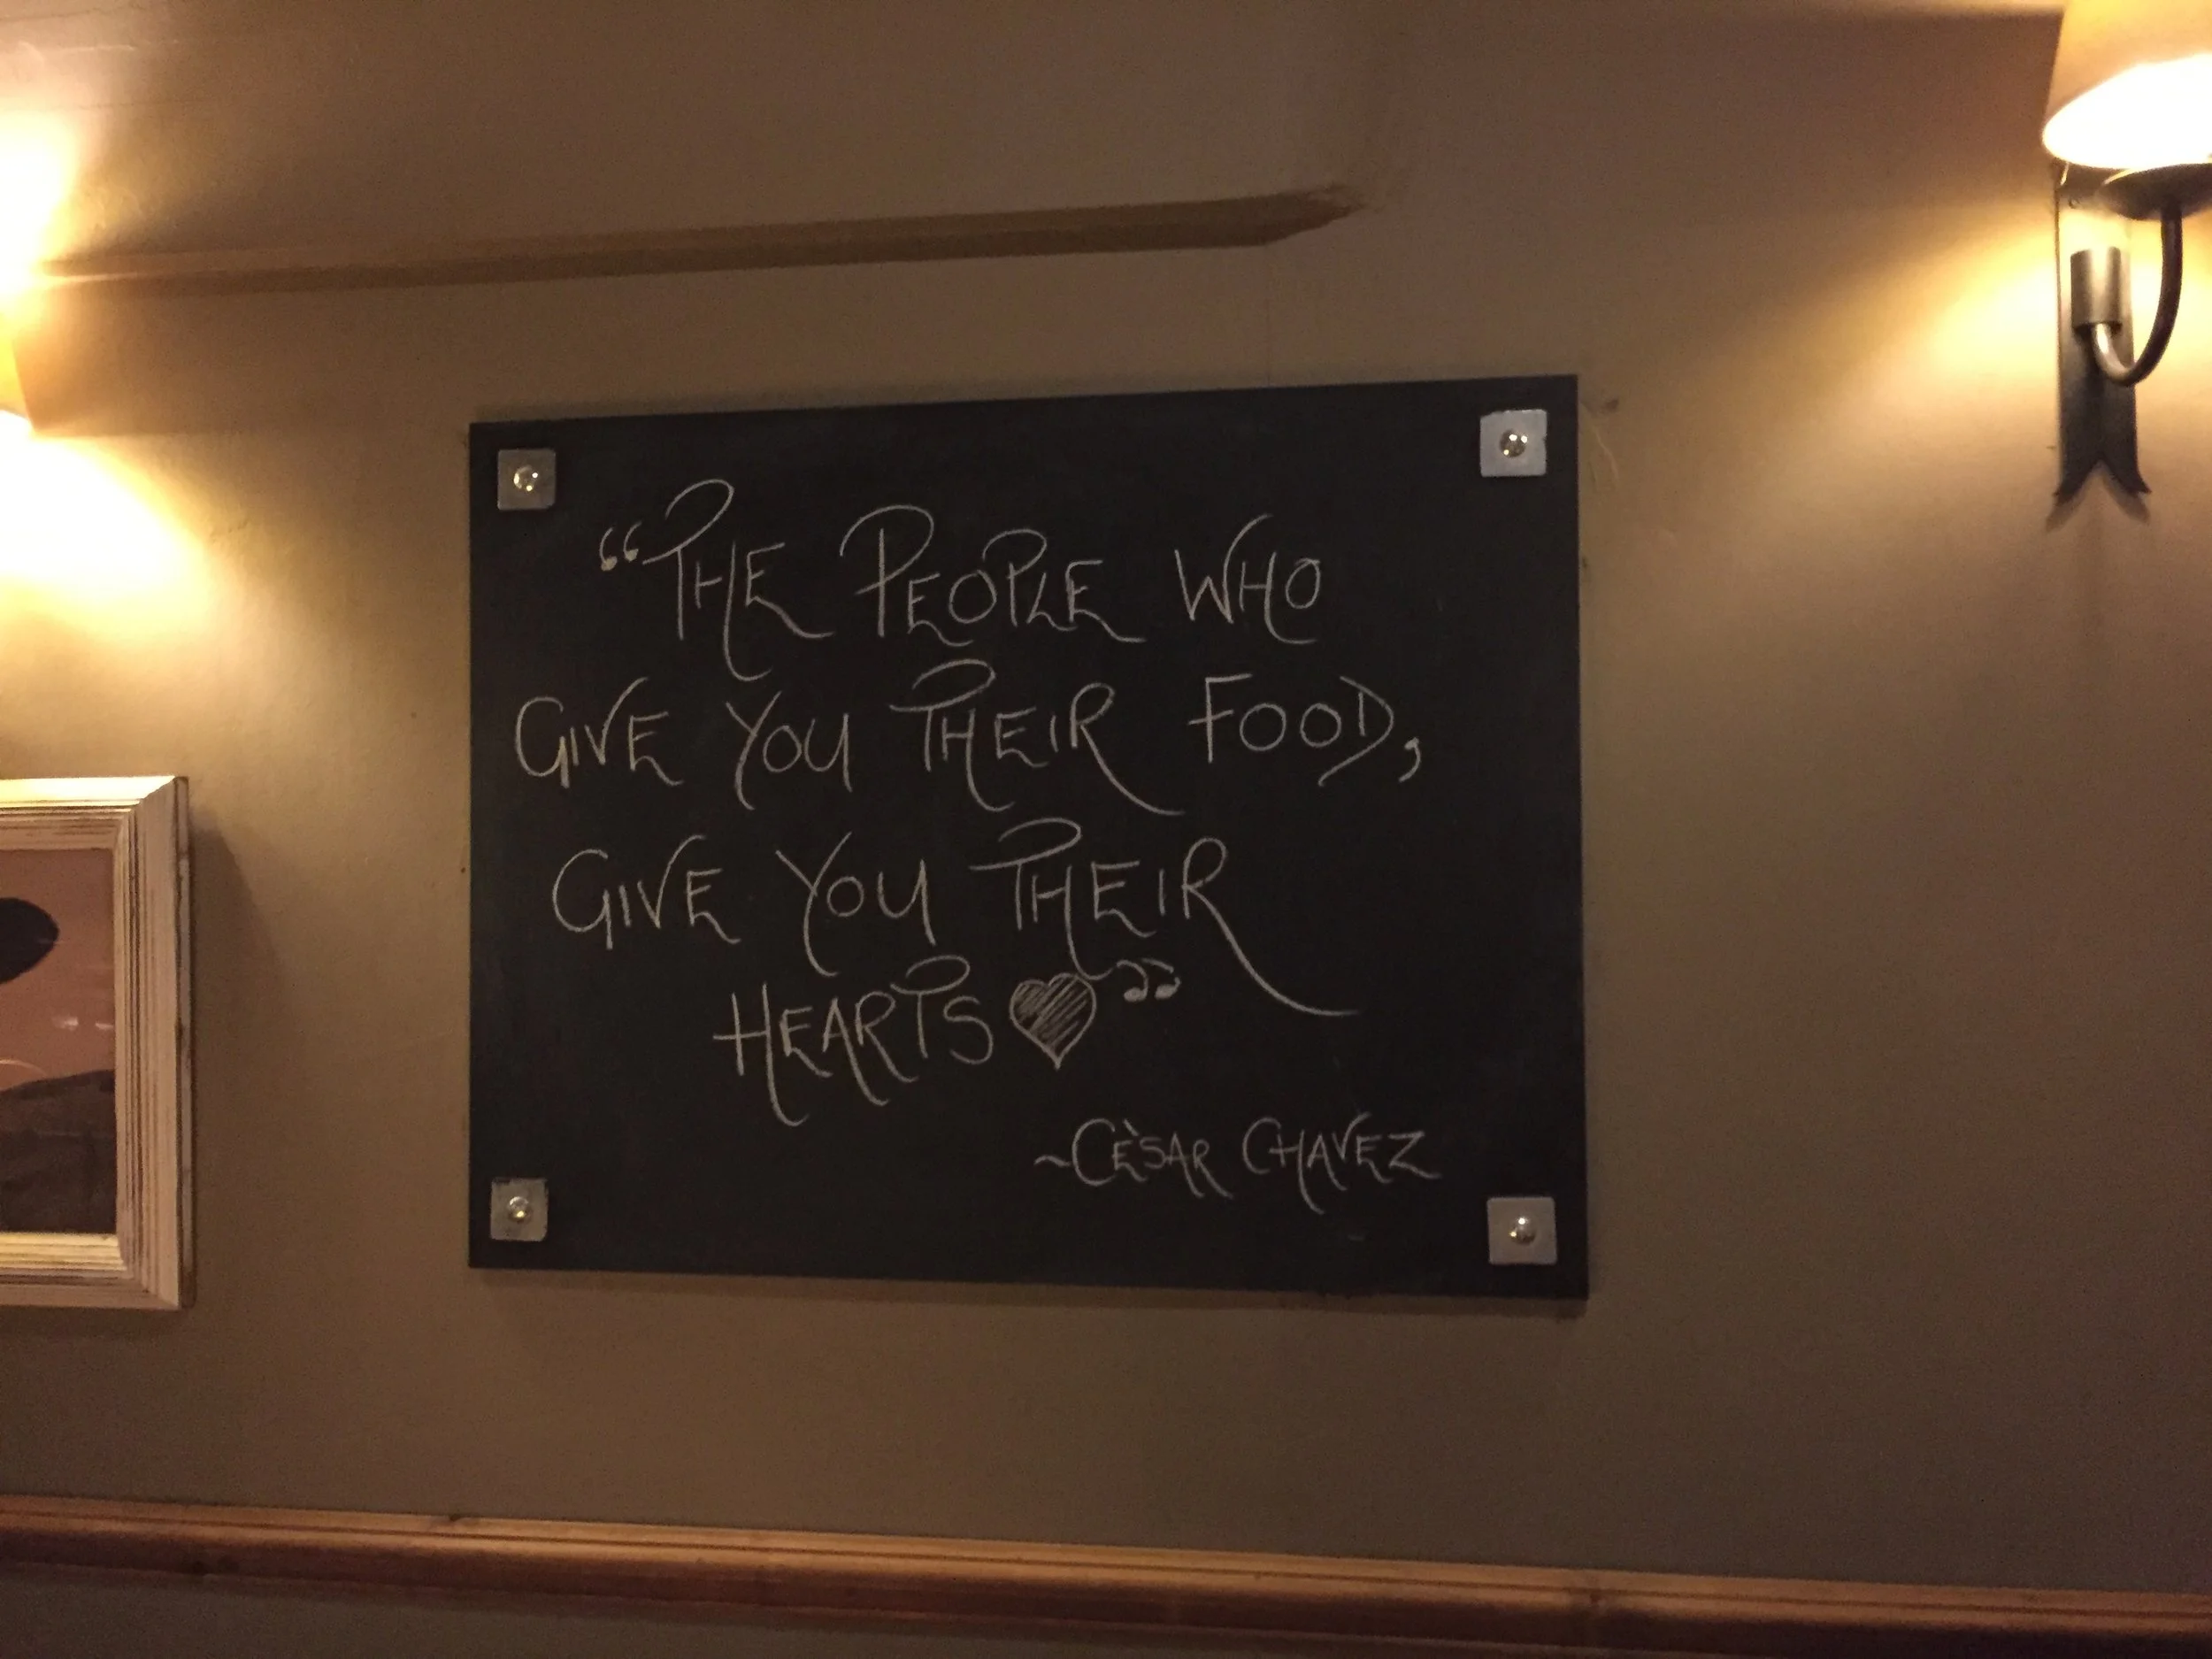 “The People who
Give You Their Food,
Give You Their
Hearts♥”
~Cèsar Chavez